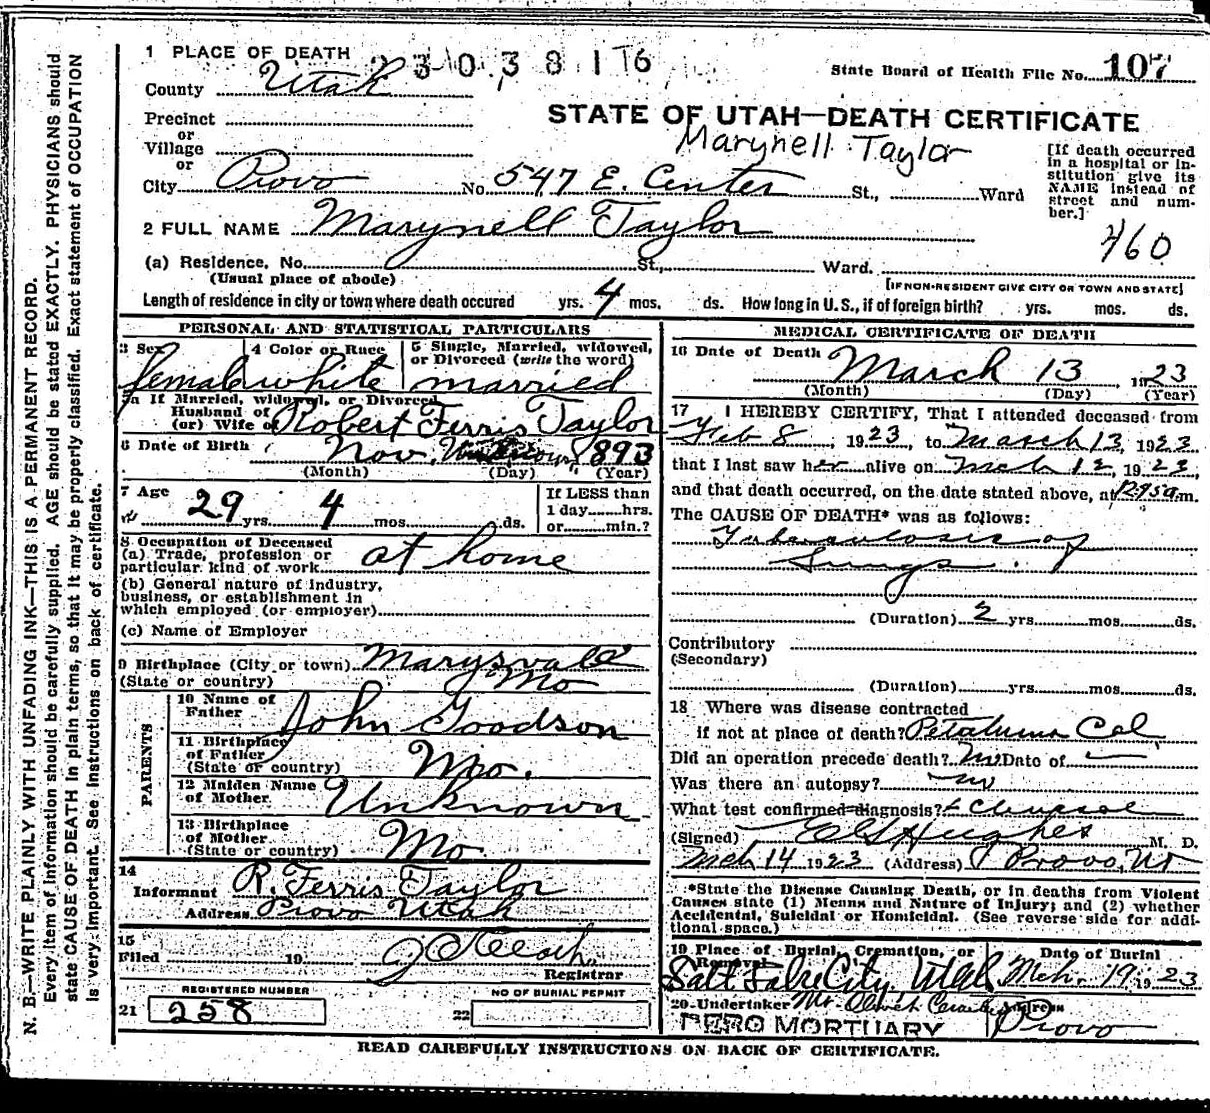 1 PLACE OF DEATH 2303816
State Board of Health File No. 107
County Utah
STATE OF UTAH—DEATH CERTIFICATE
Precinct
or
Village
or
Marynell Taylor
City Provo No. 547 E. Center St., Ward
[If death occurred in a hospital or institution give its NAME instead of street and number.]
2 FULL NAME Marynell Taylor
460
(a) Residence, No. St., Ward.
(Usual place of abode)
[IF NON-RESIDENT GIVE CITY OR TOWN AND STATE]
Length of residence in city or town where death occured yrs. 4 mos. ds. How long in U. S., if of foreign birth? yrs. mos. ds.
PERSONAL AND STATISTICAL PARTICULARS
3 Sex female
4 Color or Race white
5 Single, Married, widowed, or Divorced (write the word) married
5a If Married, widowed, or Divorced
Husband of
(or) Wife of Robert Ferris Taylor
6 Date of Birth Nov. Unknown 1893
(Month) (Day) (Year)
7 Age 29 yrs. 4 mos. ds.
If LESS than
1 day hrs.
or min.?
8 Occupation of Deceased
(a) Trade, profession or
particular kind of work at home
(b) General nature of industry,
business, or establishment in
which employed (or employer)
(c) Name of Employer
9 Birthplace (City or town) Marysvale
(State or country) Mo
PARENTS
10 Name of
Father John Goodson
11 Birthplace
of Father
(State or country) Mo.
12 Maiden Name
of Mother Unknown
13 Birthplace
of Mother
(State or country) Mo
14
Informant R. Ferris Taylor
Address Provo Utah
15
Filed 19
Registrar
REGISTERED NUMBER
21 258
NO OF BURIAL PERMIT
22
MEDICAL CERTIFICATE OF DEATH
16 Date of Death March 13, 1923
(Month) (Day) (Year)
17 I HEREBY CERTIFY, That I attended deceased from
Feb 8, 1923, to March 13, 1923
that I last saw her alive on Mch 12, 1923,
and that death occurred, on the date stated above, at m.
The CAUSE OF DEATH* was as follows:
Tuberculosis of
Lungs.
(Duration) 2 yrs. mos. ds.
Contributory
(Secondary)
(Duration) yrs. mos. ds.
18 Where was disease contracted
if not at place of death? Petaluma Cal
Did an operation precede death? No Date of
Was there an autopsy? no
What test confirmed diagnosis?
(Signed) E G Hughes M. D.
Mch 14 1923 (Address) Provo, Ut
*State the Disease Causing Death, or in deaths from Violent
Causes state (1) Means and Nature of Injury; and (2) whether
Accidental, Suicidal or Homicidal. (See reverse side for addi-
tional space.)
19 Place of Burial, Cremation, or
Removal
Salt Lake City Utah
Date of Burial
Mch. 19 1923
20 Undertaker
Address
Provo
MORTUARY
READ CAREFULLY INSTRUCTIONS ON BACK OF CERTIFICATE.
N. B.—WRITE PLAINLY WITH UNFADING INK—THIS IS A PERMANENT RECORD.
Every item of information should be carefully supplied. AGE should be stated EXACTLY. PHYSICIANS should
state CAUSE OF DEATH in plain terms, so that it may be properly classified. Exact statement of OCCUPATION
is very important. See instructions on back of certificate.